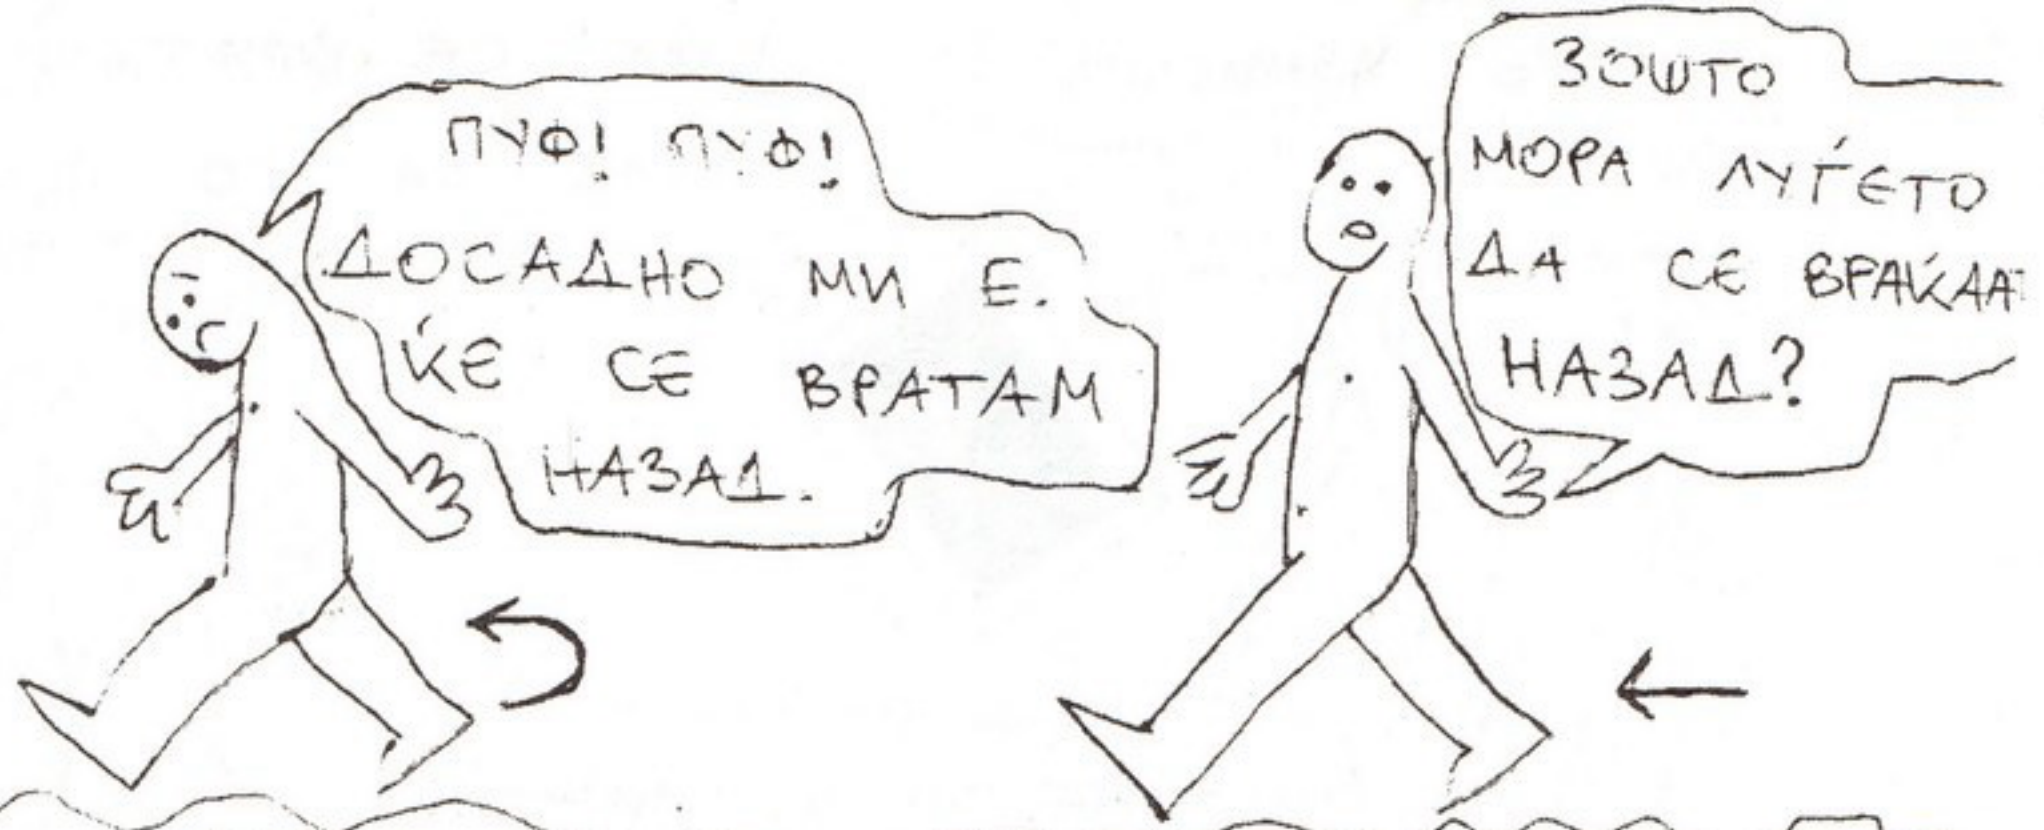 ПУФ! ПУФ!
ДОСАДНО МИ Е.
ЌЕ СЕ ВРАТАМ
НАЗАД.
ЗОШТО
МОРА ЛУЃЕТО
ДА СЕ ВРАЌААТ
НАЗАД?